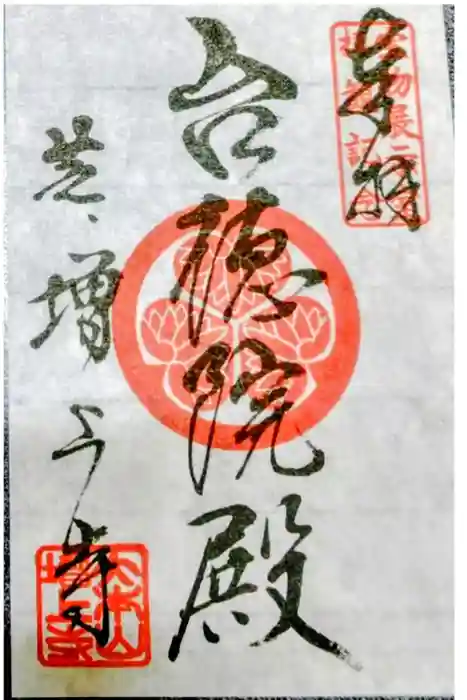 奉拝
台徳院殿
芝、増上寺